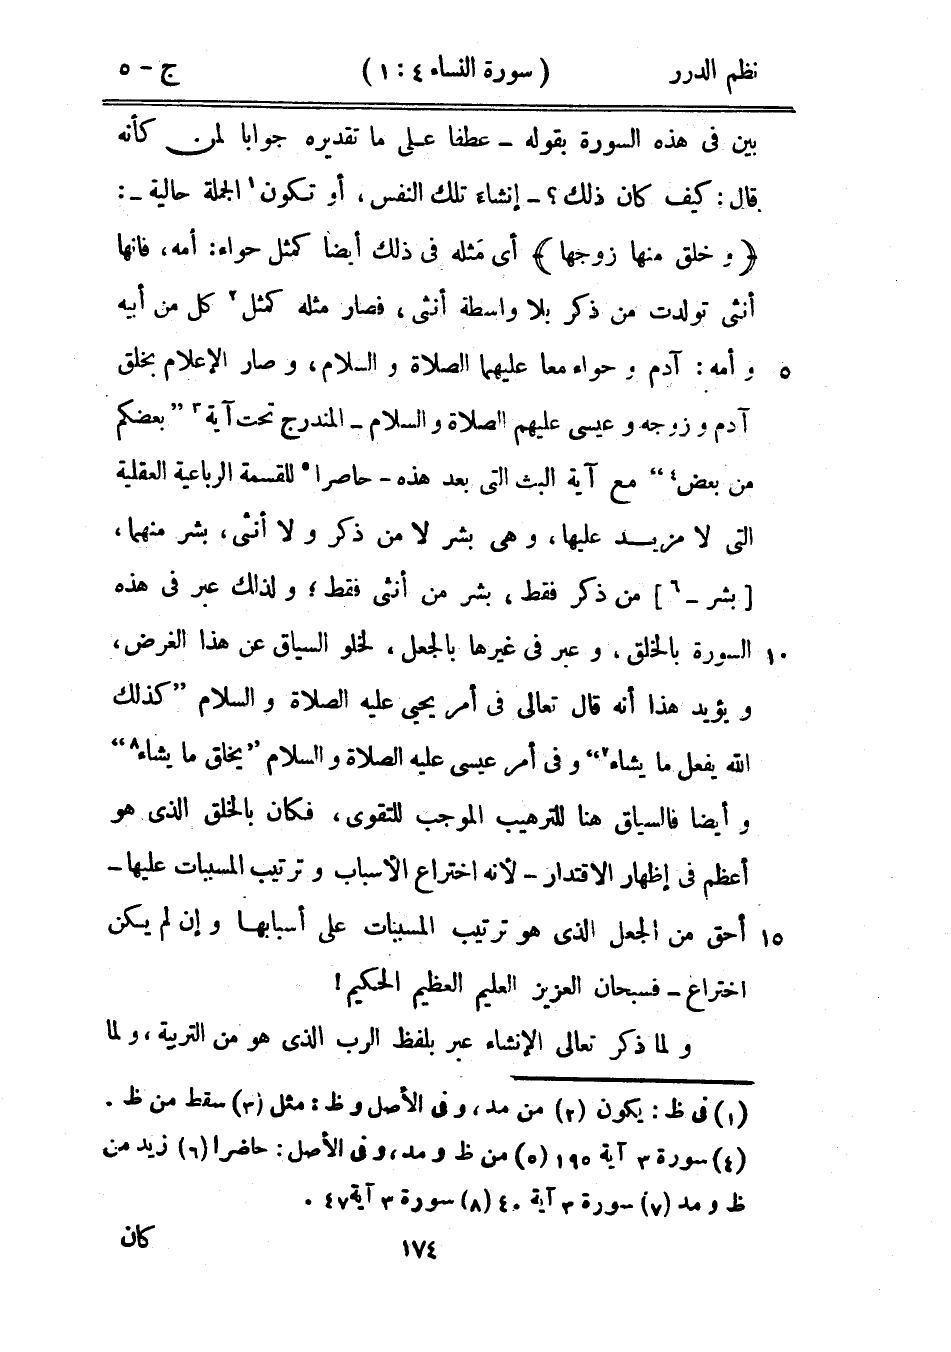 نظم الدرر ( سورة النساء ٤ : ١ ) ج - ٥
بين فى هذه السورة بقوله ــ عطفا على ما تقديره جوابا لمن كأنه
قال : كيف كان ذلك ؟ ــ إنشاء تلك النفس ، أو تكون١ الجملة حالية ــ :
﴿ و خلق منها زوجها ﴾ أى مثله فى ذلك أيضا كمثل حواء : أمه ، فانها
أنثى تولدت من ذكر بلا واسطة أنثى ، فصار مثله كمثل٢ كل من أبيه
٥ و أمه : آدم و حواء معا عليهما الصلاة و السلام ، و صار الإعلام بخلق
آدم و زوجه و عيسى عليهم الصلاة و السلام ــ المندرج تحت آية٣ ” بعضكم
من بعض٤ “ مع آية البث التى بعد هذه - حاصرا٥ للقسمة الرباعية العقلية
التى لا مزيد عليها ، و هى بشر لا من ذكر و لا أنثى ، بشر منهما ،
[ بشر ــ٦ ] من ذكر فقط ، بشر من أنثى فقط ؛ و لذلك عبر فى هذه
١٠ السورة بالخلق ، و عبر فى غيرها بالجعل ، لخلو السياق عن هذا الغرض ،
و يؤيد هذا أنه قال تعالى فى أمر يحيى عليه الصلاة و السلام ” كذلك
الله يفعل ما يشاء٧ “ و فى أمر عيسى عليه الصلاة و السلام ” يخلق ما يشاء٨ “
و أيضا فالسياق هنا للترهيب الموجب للتقوى ، فكان بالخلق الذى هو
أعظم فى إظهار الاقتدار ــ لأنه اختراع الأسباب و ترتيب المسببات عليها ــ
١٥ أحق من الجعل الذى هو ترتيب المسببات على أسبابها و إن لم يكن
اختراع ــ فسبحان العزيز العليم العظيم الحكيم !
و لما ذكر تعالى الإنشاء عبر بلفظ الرب الذى هو من التربية ، و لما
(١) فى ظ : يكون (٢) من مد ، و فى الأصل و ظ : مثل (٣) سقط من ظ .
(٤) سورة ٣ آية ١٩٥ (٥) من ظ و مد ، و فى الأصل : حاضرا (٦) زيد من
ظ و مد (٧) سورة ٣ آية ٤٠ (٨) سورة ٣ آية ٤٧ .
١٧٤ كان